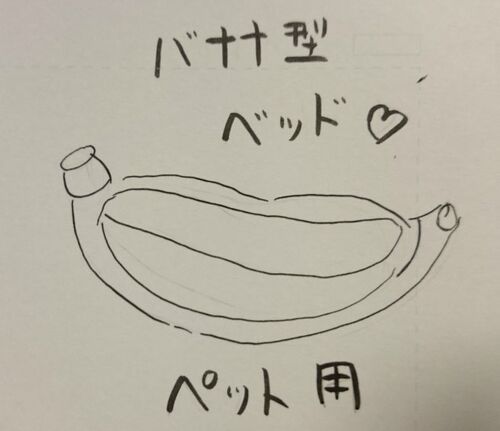 バナナ型
ベッド♡
ペット用